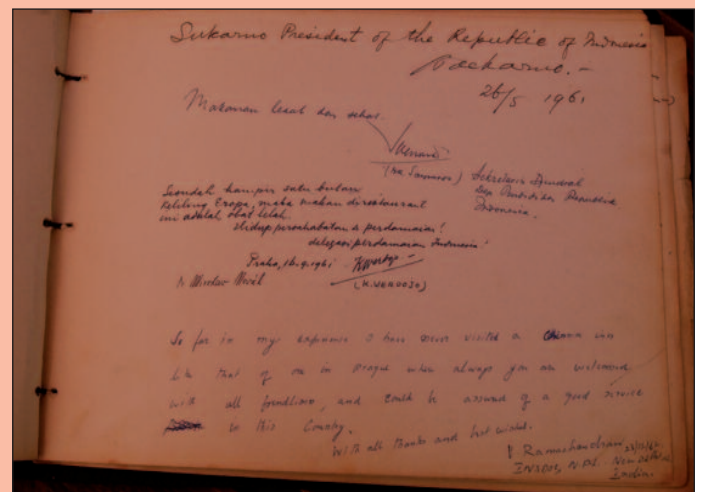 Sukarno President of the Republic of Indonesia
Soekarno.-
26/5 1961
Makanan lezat dan sehat.
Sekretaris Djendral
Indonesia.
Seondah hampir satu bulan
keliling Eropa, maka makan direstaurant
ini adalah obat lelah.
Hidup persahabatan & perdamaian!
delegasi perdamaian Indonesia.
Praha, 16.9.1961
So far in my experience I have never visited a China inn
like that of one in Prague where always you are welcomed
with all friendliness, and could be assured of a good service
in this Country.
With all thanks and best wishes.
Ramachandran
New Delhi
India.